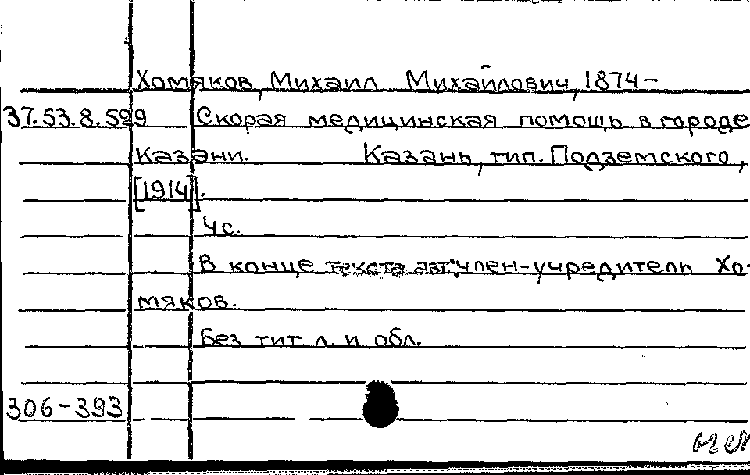 Хомяков, Михаил Михайлович, 1874-
37.53.8.599 Скорая медицинская помощь в городе
Казани. Казань, тип. Подземского,
[1914].
4с.
В конце текста авт: член-учредитель Хо-
мяков.
Без тит л. и обл.
306-393